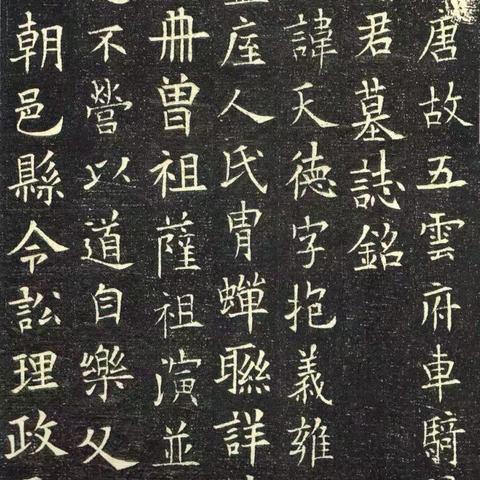 唐故五雲府車騎
君墓誌銘
諱天徳字抱義雍
庢人氏胄蟬聯詳
冊曽祖薩祖演並
不營以道自樂父
朝邑縣令訟理政